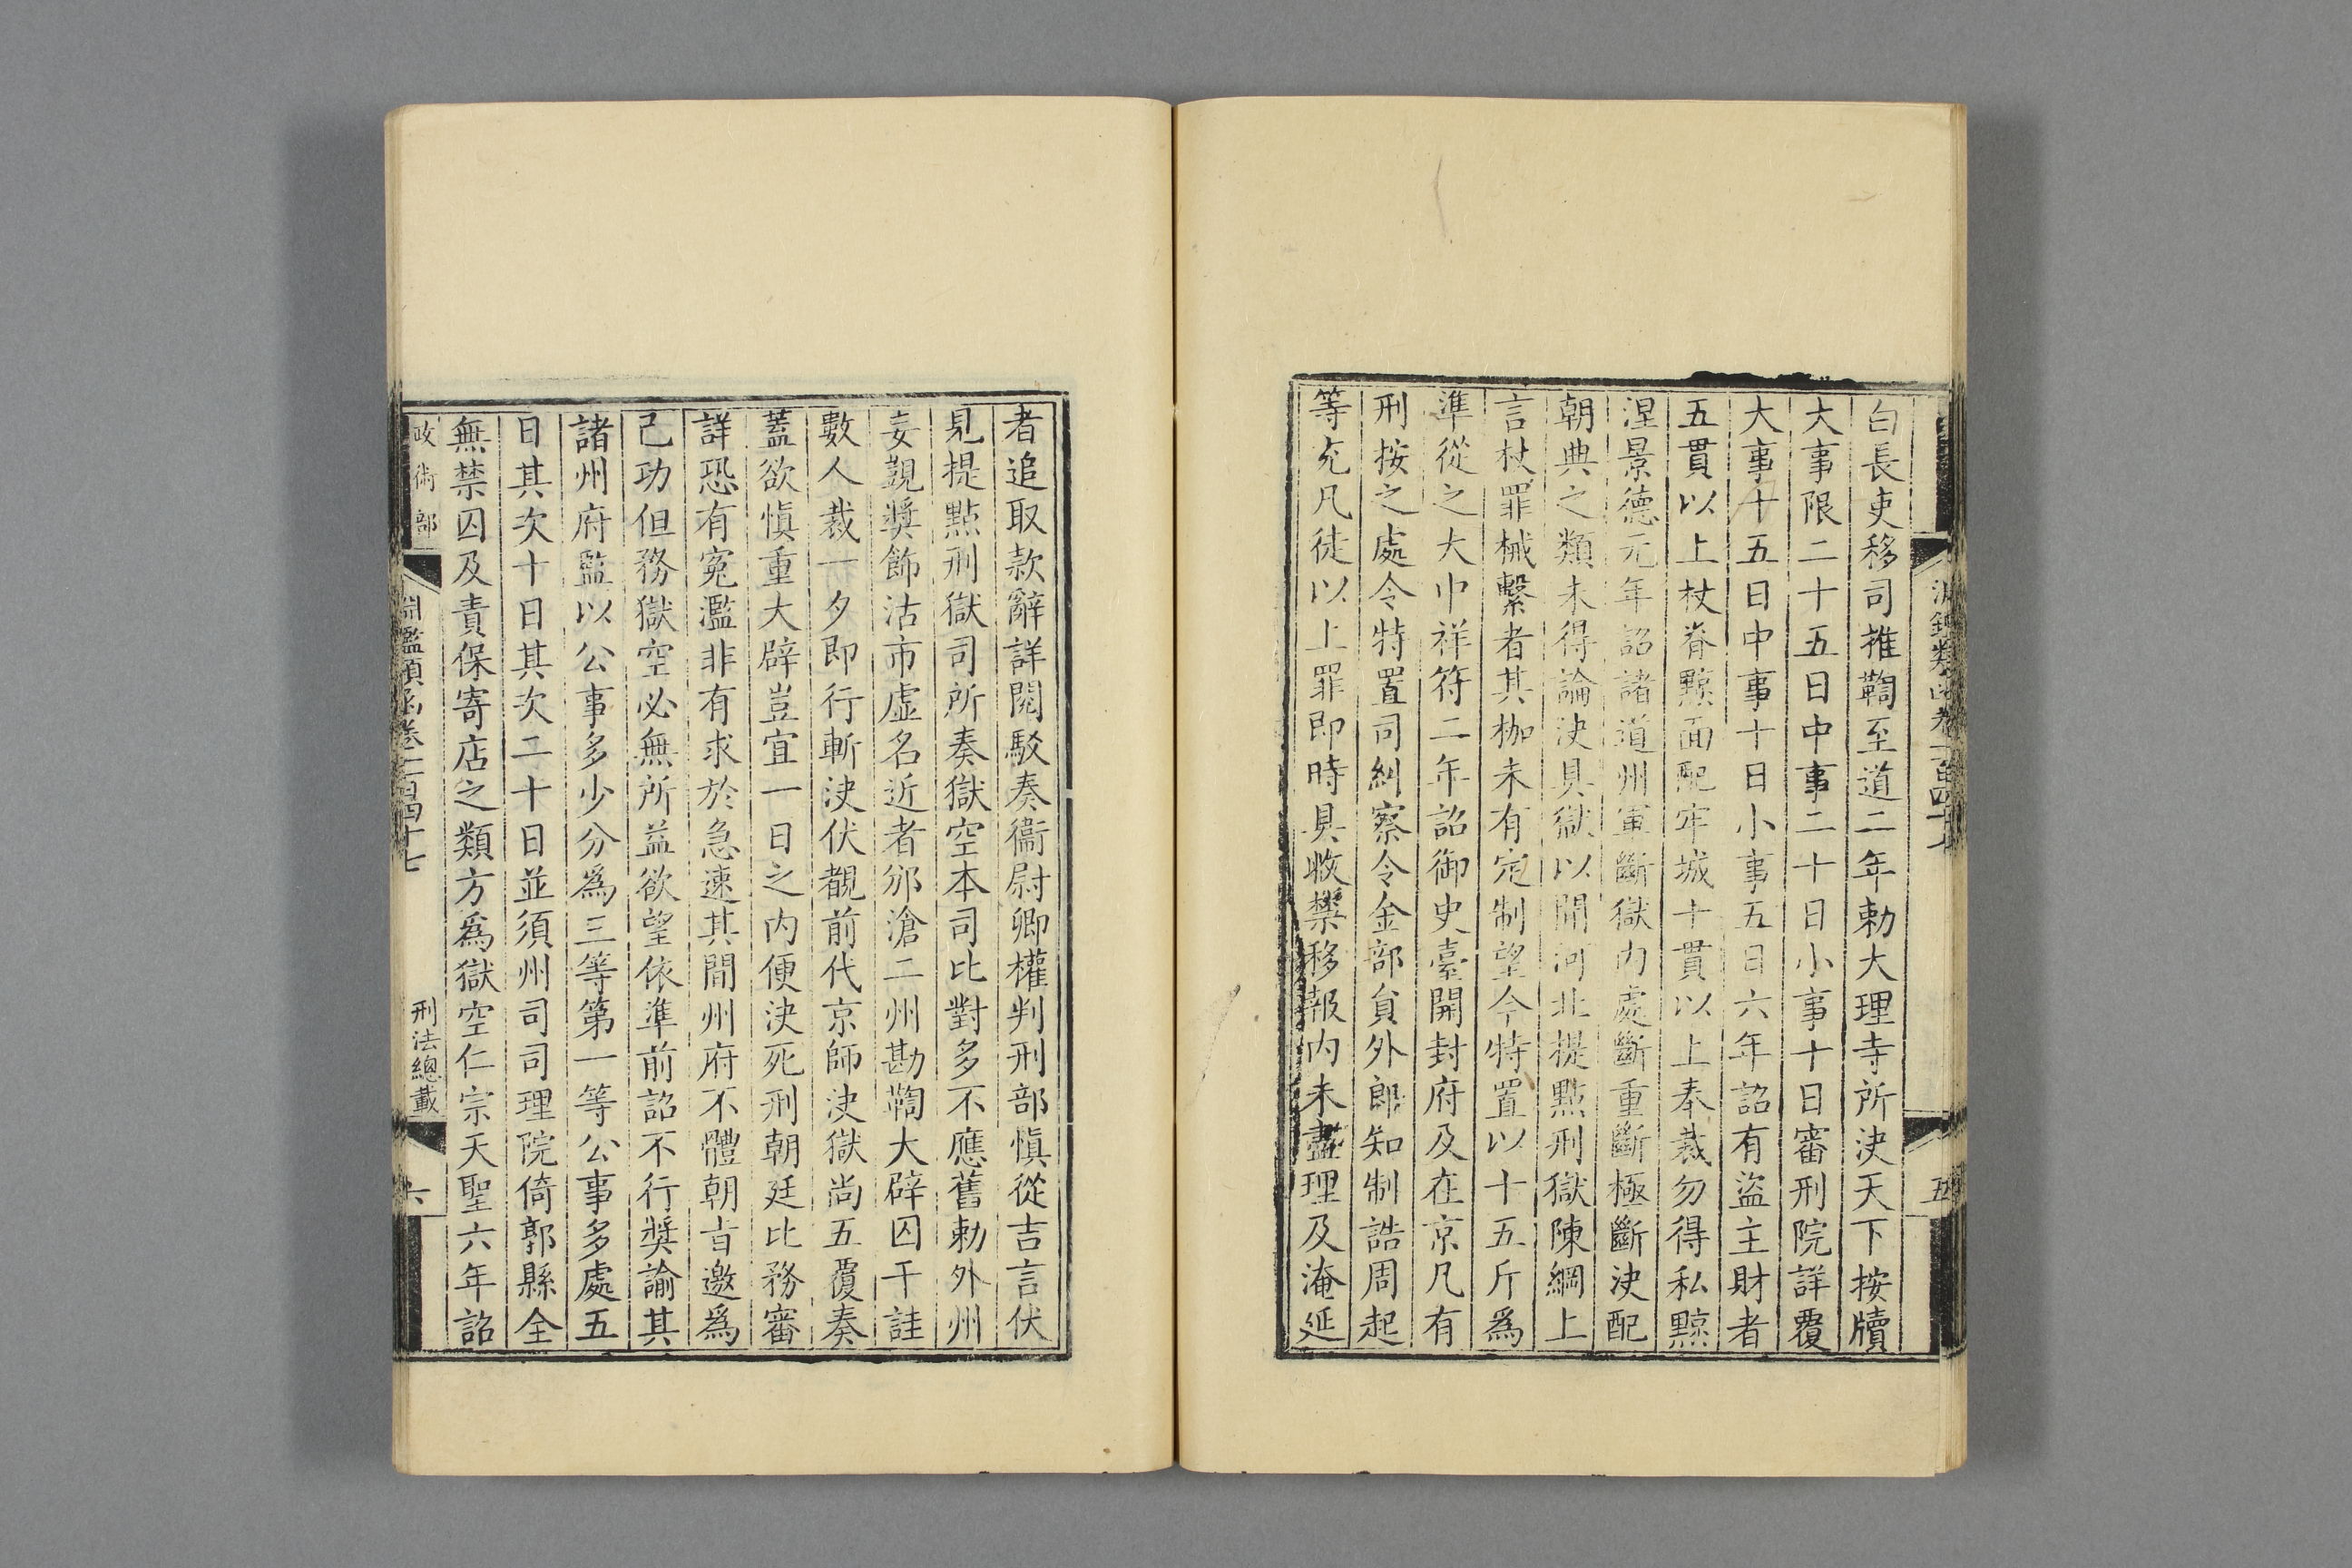 白長吏移司推鞫至道二年勅大理寺所決天下按牘
大事限二十五日中事二十日小事十日審刑院詳覆
大事十五日中事十日小事五日六年詔有盜主財者
五貫以上杖脊黥面配牢城十貫以上奉裁勿得私黥
涅景德元年詔諸道州軍斷獄內處斷重斷極斷決配
朝典之類未得論決具獄以聞河北提㸃刑獄陳綱上
言杖罪械繫者其枷未有定制望令特置以十五斤爲
準從之大中祥符二年詔御史臺開封府及在京凡有
刑按之處令特置司糾察令金部員外郎知制誥周起
等充凡徒以上罪即時具收禁移報內未盡理及淹延
者追取款辭詳閱駁奏衞尉卿權判刑部愼從吉言伏
見提㸃刑獄司所奏獄空本司比對多不應舊勅外州
妄覬獎飾沽市虛名近者邠滄二州勘鞫大辟囚干詿
數人裁一夕即行斬決伏覩前代京師決獄尚五覆奏
蓋欲愼重大辟豈宜一日之內便決死刑朝廷比務審
詳恐有寃濫非有求於急速其間州府不體朝旨邀爲
己功但務獄空必無所益欲望依準前詔不行獎諭其
諸州府監以公事多少分爲三等第一等公事多處五
日其次十日其次二十日並須州司司理院倚郭縣全
無禁囚及責保寄店之類方爲獄空仁宗天聖六年詔
政術部
淵鑑類函卷一百四十七
刑法總載
六